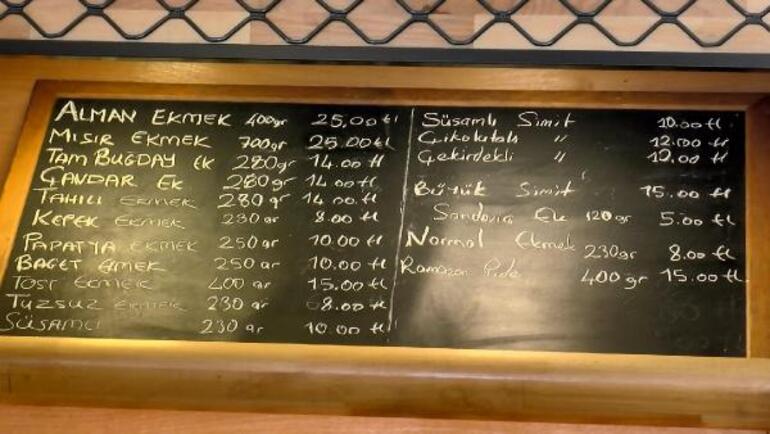 ALMAN EKMEK 400gr 25,00tl
MISIR EKMEK 700gr 25.00tl
TAM BUGDAY EK 280gr 14.00 tl
ÇAVDAR EK 280gr 14.00 tl
TAHILI EKMEK 280gr 14.00 tl
KEPEK EKMEK 230gr 8.00 tl
PAPATYA EKMEK 250gr 10.00 tl
BAGET EMEK 250 gr 10.00 tl
TOST EKMEK 400 gr 15.00 tl
TUZSUZ EKMEK 230 gr 8.00 tl
SÜSAMLI 230 gr 10.00 tl
Süsamlı Simit 10.00 tl
Çikolatalı " 12.00 tl
Çekirdekli " 12.00 tl
Büyük Simit 15.00 tl
Sandoviç Ek 120gr 5.00 tl
Normal Ekmek 230gr 8.00 tl
Ramazan Pide 400gr 15.00 tl